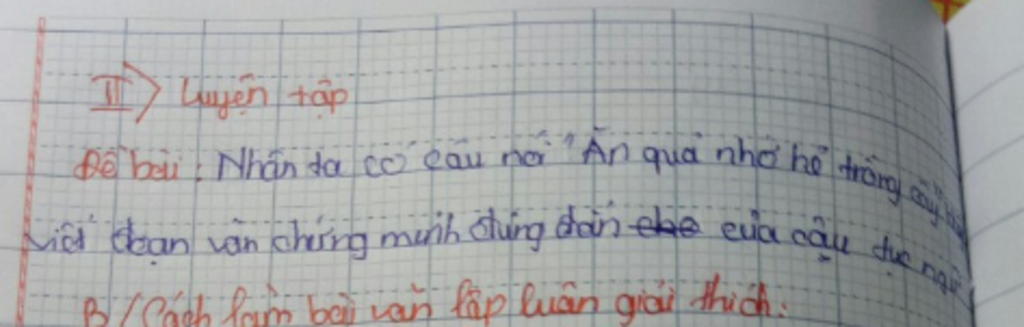 II) Luyện tập
Đề bài: Nhân ta có câu nói "Ăn quả nhớ kẻ trồng cây"
viết đoạn văn chứng minh đúng đắn của câu tục ngữ
B/ Cách làm bài văn lập luận giải thích: